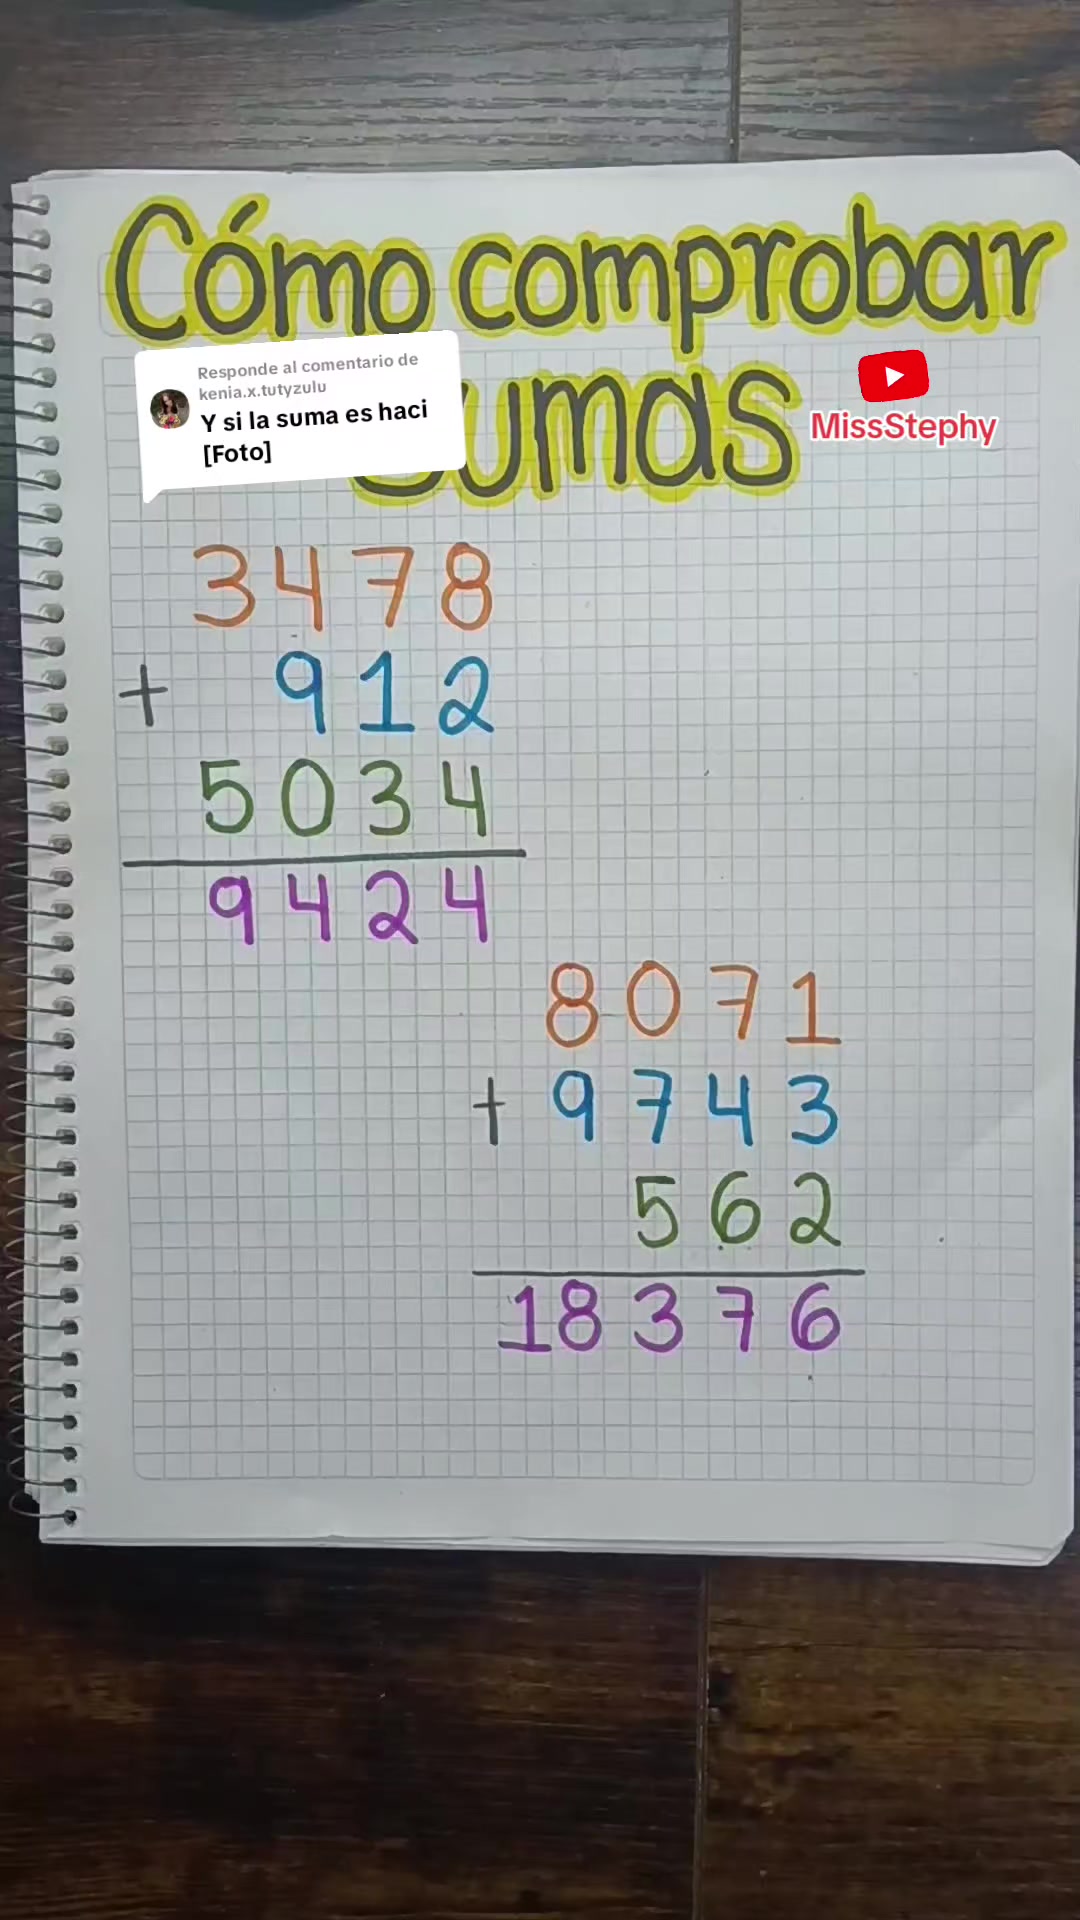 Cómo comprobar
Responde al comentario de
kenia.x.tutyzulu
Y si la suma es haci
[Foto]
sumas
MissStephy
3478
+ 912
5034
9424
8071
+ 9743
562
18376